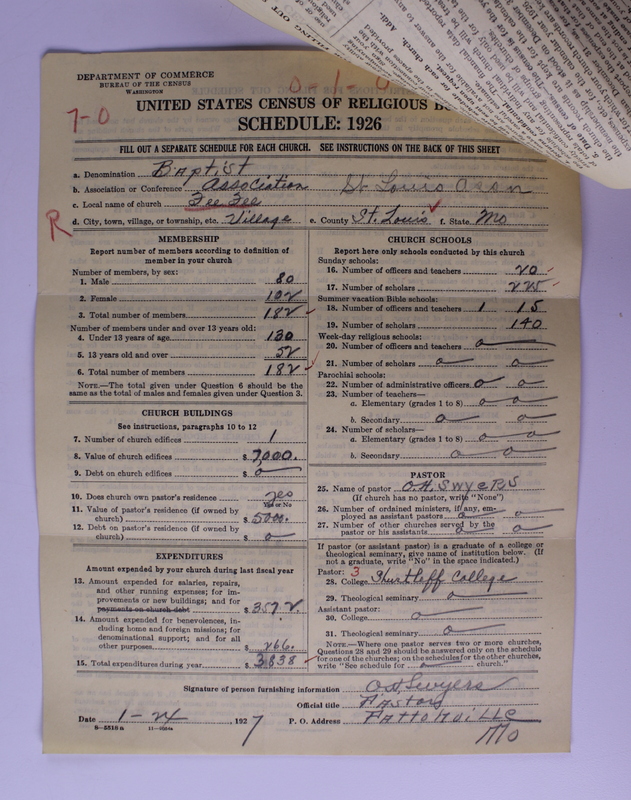 DEPARTMENT OF COMMERCE
BUREAU OF THE CENSUS
WASHINGTON
7-0
UNITED STATES CENSUS OF RELIGIOUS
SCHEDULE: 1926
FILL OUT A SEPARATE SCHEDULE FOR EACH CHURCH. SEE INSTRUCTIONS ON THE BACK OF THIS SHEET
a. Denomination Baptist
b. Association or Conference Association St Louis Assn
c. Local name of church Fee Fee
R
d. City, town, village, or township, etc. Village e. County St. Louis f. State Mo
MEMBERSHIP
Report number of members according to definition of
member in your church
Number of members, by sex:
1. Male 80
2. Female 102
3. Total number of members 182
Number of members under and over 13 years old:
4. Under 13 years of age 130
5. 13 years old and over 52
6. Total number of members 182
NOTE.—The total given under Question 6 should be the
same as the total of males and females given under Question 3.
CHURCH BUILDINGS
See instructions, paragraphs 10 to 12
7. Number of church edifices 1
8. Value of church edifices $ 7,000.
9. Debt on church edifices $ o
10. Does church own pastor's residence yes
Yes or No
11. Value of pastor's residence (if owned by
church) $ 5000.
12. Debt on pastor's residence (if owned by
church) $ o
EXPENDITURES
Amount expended by your church during last fiscal year
13. Amount expended for salaries, repairs,
and other running expenses; for im-
provements or new buildings; and for
payments on church debt $ 3572.
14. Amount expended for benevolences, in-
cluding home and foreign missions; for
denominational support; and for all
other purposes $ 266.
15. Total expenditures during year $ 3838
CHURCH SCHOOLS
Report here only schools conducted by this church
Sunday schools:
16. Number of officers and teachers 20
17. Number of scholars 225
Summer vacation Bible schools:
18. Number of officers and teachers 1 15
19. Number of scholars 140
Week-day religious schools:
20. Number of officers and teachers o
21. Number of scholars o o
Parochial schools:
22. Number of administrative officers o o
23. Number of teachers—
a. Elementary (grades 1 to 8) o o
b. Secondary o o
24. Number of scholars—
a. Elementary (grades 1 to 8) o o
b. Secondary o o
PASTOR
25. Name of pastor O.H. SWYERS
(If church has no pastor, write "None")
26. Number of ordained ministers, if any, em-
ployed as assistant pastors o o
27. Number of other churches served by the
pastor or his assistants o o
If pastor (or assistant pastor) is a graduate of a college or
theological seminary, give name of institution below. (If
not a graduate, write "No" in the space indicated.)
Pastor: 3
28. College Shurtleff College
29. Theological seminary o
Assistant pastor:
30. College o
31. Theological seminary o
NOTE.—Where one pastor serves two or more churches,
Questions 28 and 29 should be answered only on the schedule
for one of the churches; on the schedules for the other churches,
write "See schedule for church."
Signature of person furnishing information O.H. Swyers
Official title Pastor
Date 1-24, 1927 P. O. Address Pattonville
Mo
8-5318a 11-6504a